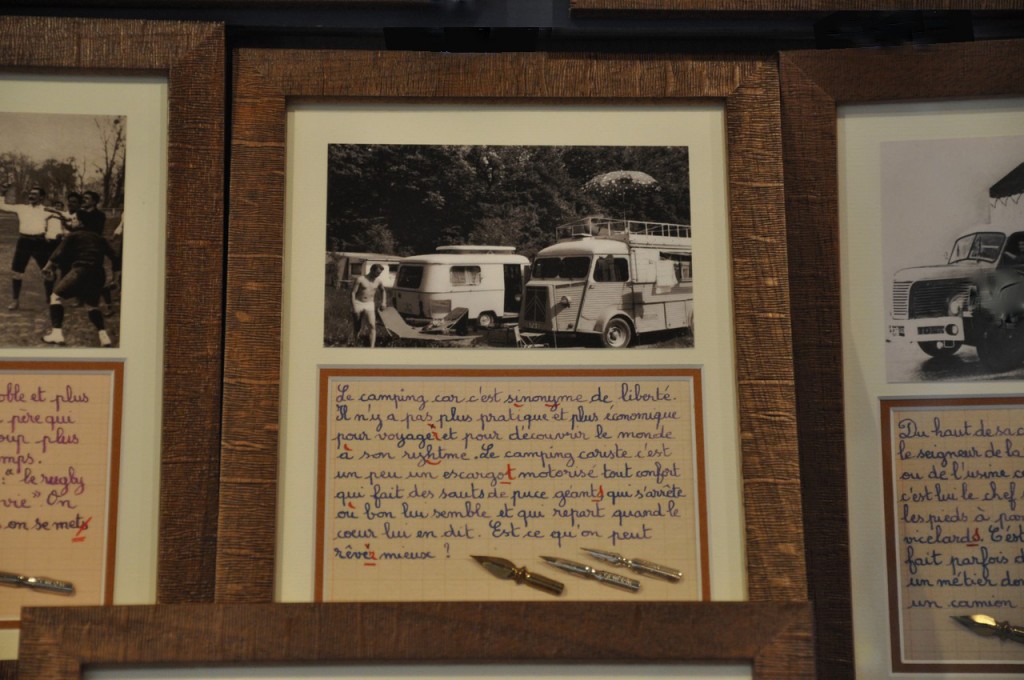 oble et plus
père qui
oup plus
mps.
: "le rugby
vie". On
on se mets
Le camping car c'est sinonyme de liberté.
Il n'y a pas plus pratique et plus économique
pour voyager et pour découvrir le monde
à son ryhtme. Le camping cariste c'est
un peu un escargot motorisé tout confort
qui fait des sauts de puce géants qui s'arrête
où bon lui semble et qui repart quand le
cœur lui en dit. Est ce qu'on peut
rêver mieux ?
Du haut de sa c
le seigneur de la
ou de l'usine c
c'est lui le chef
les pieds à pa
C'est
fait parfois d
un métier do
un camion